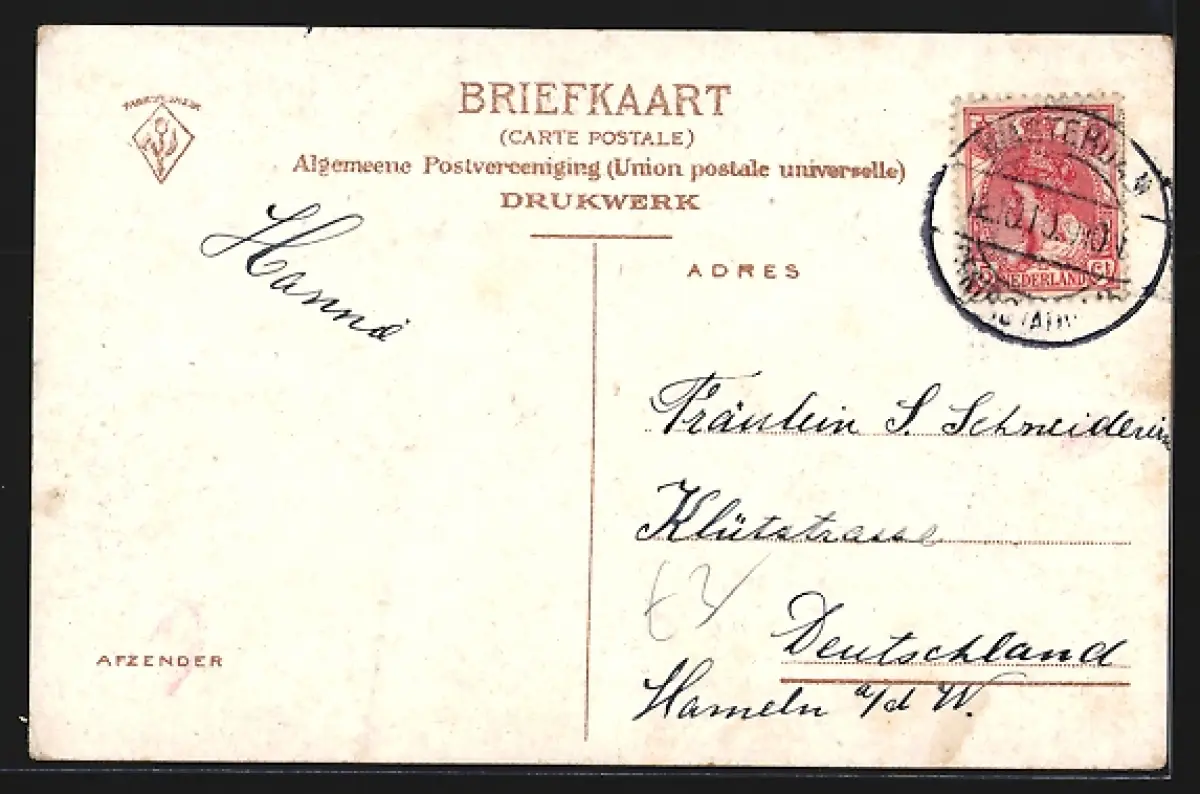 BRIEFKAART
(CARTE POSTALE)
Algemeene Postvereeniging (Union postale universelle)
DRUKWERK
ADRES
NEDERLAND
Hanna
Fräulein S. Schneiderin
Klütstrasse
Deutschland
Hameln a/d W.
AFZENDER